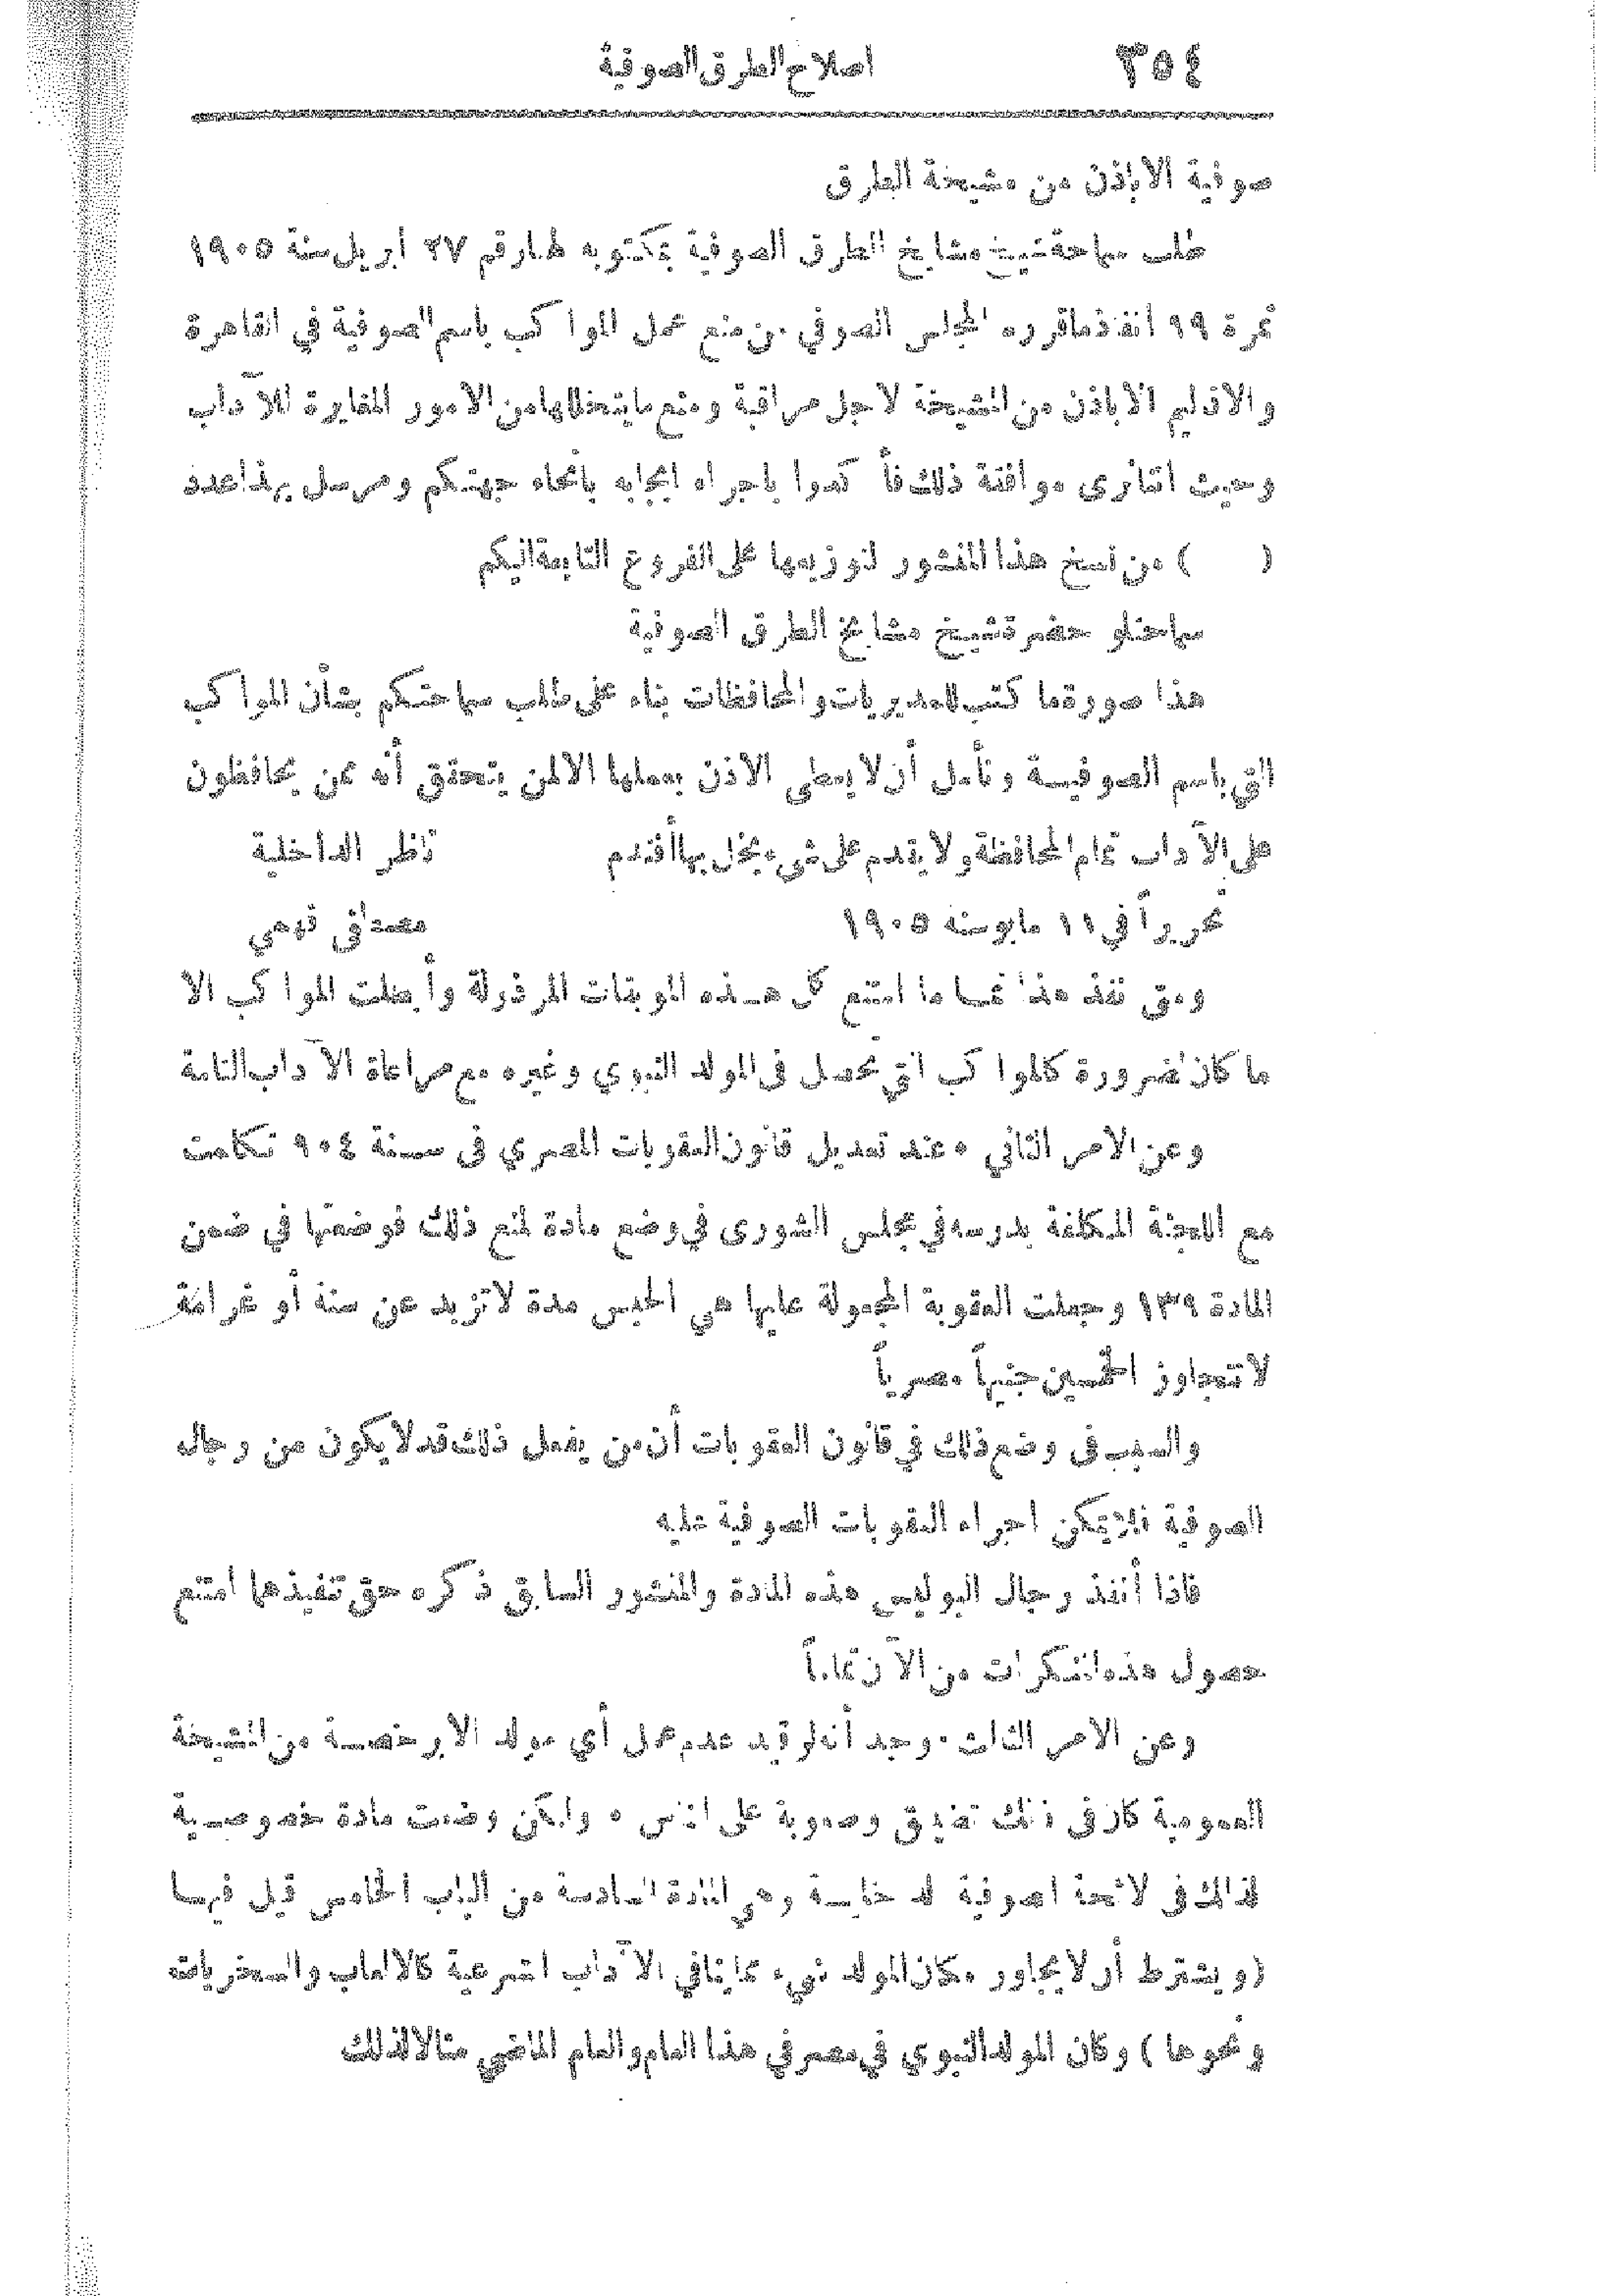 ٣٥٤ اصلاح الطرق الصوفية
صوفية الا بإذن من مشيخة الطرق
طلب سماحة شيخ مشايخ الطرق الصوفية بمكتوبه لها رقم ٢٧ أبريل سنة ١٩٠٥
نمرة ٩٩ انفاذ ما قرره المجلس الصوفي من منع عمل المواكب باسم الصوفية في القاهرة
والاقاليم الا باذن من المشيخة لاجل مراقبة ومنع ما يتخللها من الامور المغايرة للآداب
وحيث اننا نرى موافقة ذلك فأكدوا باجراء ايجابه بانحاء جهتكم ومرسل بهذا عدد
( ) من نسخ هذا المنشور لتوزيعها على الفروع التابعة اليكم
سماحتلو حضرة شيخ مشايخ الطرق الصوفية
هذا صورة ما كتب للمديريات والمحافظات بناء على طلب سماحتكم بشأن المواكب
التي باسم الصوفية ونأمل أن لا يعطى الاذن بعملها الا لمن يتحقق أنه ممن يحافظون
على الآداب تمام المحافظة ولا يقدم على شيء يخل بها أفندم ناظر الداخلية
تحريراً في ١١ مايو سنه ١٩٠٥ مصطفى فهمي
ومتى نفذ هذا تماما امتنع كل هذه الموبقات المرذولة وأبطلت المواكب الا
ما كان لضرورة كالمواكب التي تحصل في المولد النبوي وغيره مع مراعاة الآداب التامة
وعن الامر الثاني ٠ عند تعديل قانون العقوبات المصري في سنة ٩٠٤ تكلمت
مع اللجنة المكلفة بدرسه في مجلس الشورى في وضع مادة لمنع ذلك فوضعتها في ضمن
المادة ١٣٩ وجعلت العقوبة المجعولة عليها هي الحبس مدة لا تزيد عن سنة أو غرامة
لا تتجاوز الخمسين جنيهاً مصرياً
والسبب في وضع ذلك في قانون العقوبات أن من يفعل ذلك قد لا يكون من رجال
الصوفية فلا يمكن اجراء العقوبات الصوفية عليه
فاذا أنفذ رجال البوليس هذه المادة والمنشور السابق ذكره حق تنفيذها امتنع
حصول هذه المنكرات من الآن تماماً
وعن الامر الثالث ٠ وجد أنه لو قيد عدم عمل أي مولد الا برخصة من المشيخة
العمومية كان في ذلك تضييق وصعوبة على الناس ٠ ولكن وضعت مادة خصوصية
لذلك في لائحة الصوفية الداخلية وهي المادة السادسة من الباب الخامس قيل فيها
(ويشترط أن لا يجاور مكان المولد شيء مما ينافي الآداب الشرعية كالالعاب والسخريات
ونحوها ) وكان المولد النبوي في مصر في هذا العام والعام الماضي مثالا لذلك